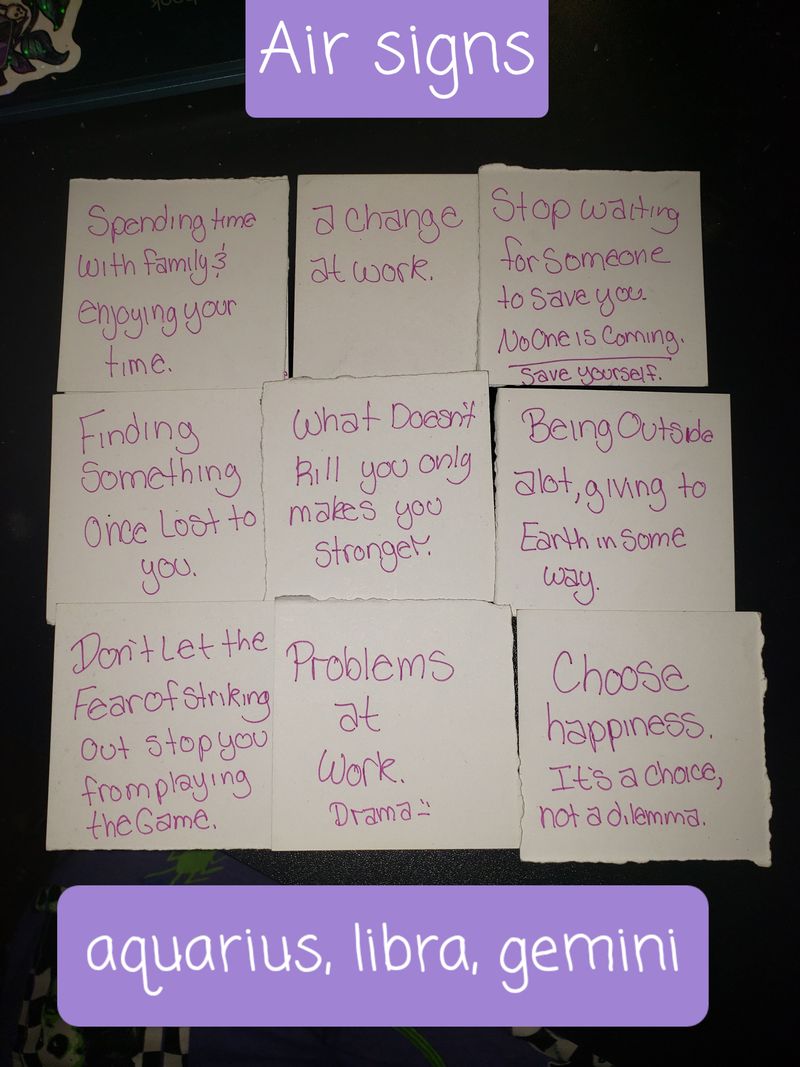 Air signs
Spending time
with family &
enjoying your
time.
a change
at work.
Stop waiting
for someone
to save you.
No One is Coming.
Save yourself.
Finding
Something
Once Lost to
you.
What Doesn't
kill you only
makes you
stronger.
Being Outside
alot, giving to
Earth in some
way.
Don't Let the
Fear of striking
out stop you
from playing
the Game.
Problems
at
Work.
Drama
Choose
happiness.
It's a choice,
not a dilemma.
aquarius, libra, gemini